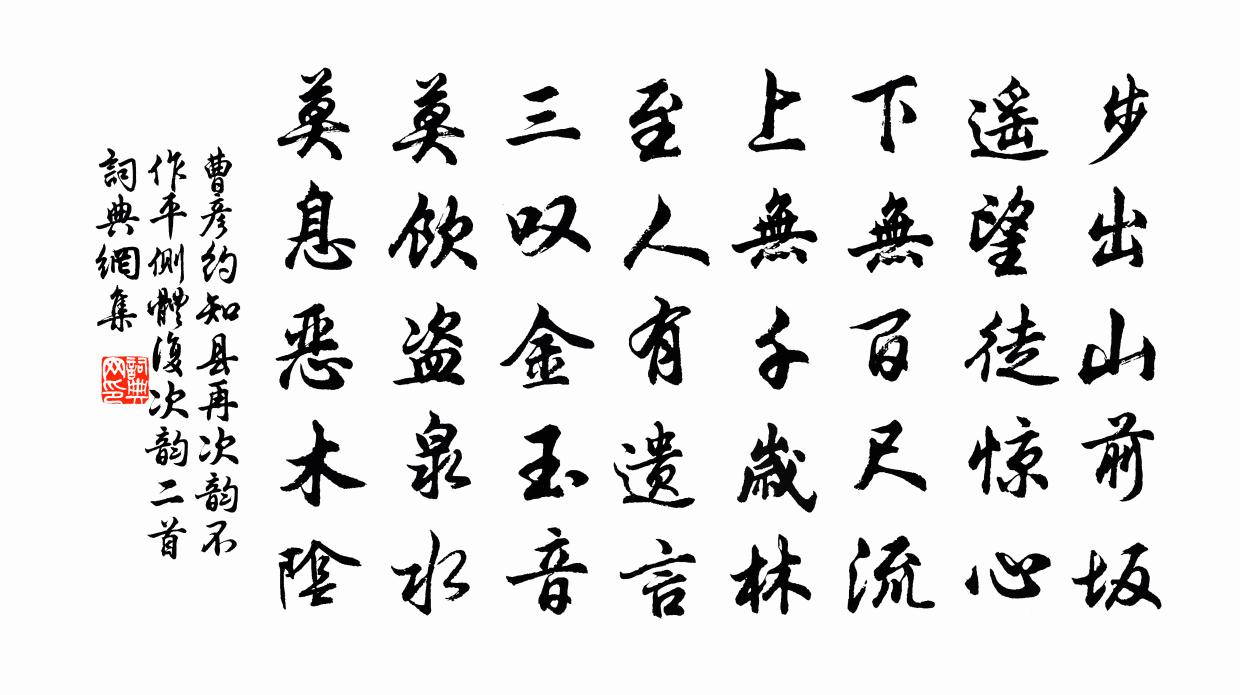 步出山前坂
遥望徒惊心
下無百尺流
上無千歲林
至人有遗言
三叹金玉音
莫飲盗泉水
莫息恶木陰
曹彦约知县再次韵不
作平側體復次韵二首
詞典網集
詞典網印